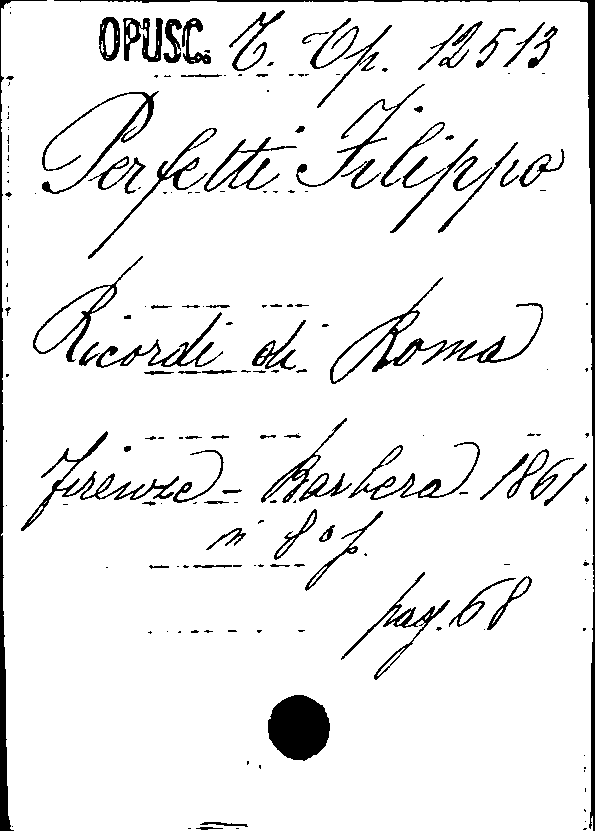 OPUSC. T. Op. 12513
Perfetti Filippo
Ricordi di Roma
Firenze - Barbera - 1861
in 8° p.
pag. 68